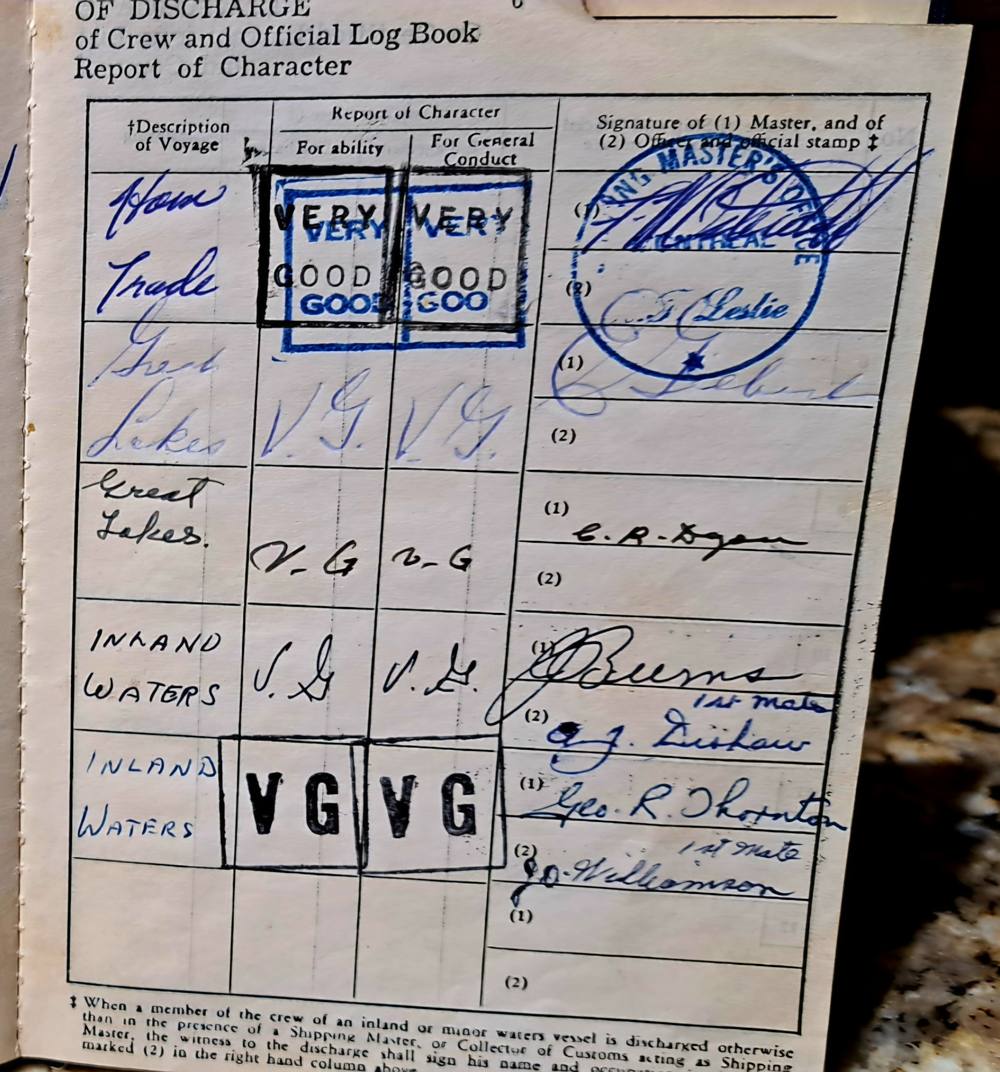 OF DISCHARGE 6
of Crew and Official Log Book
Report of Character
†Description
of Voyage
Report of Character
For ability
For General
Conduct
Signature of (1) Master, and of
(2) Officer and official stamp ‡
Home
Trade
VERY VERY
VERY VERY
GOOD GOOD
GOOD GOO
MASTER'S OFFICE
MONTREAL
(1)
(2) Leslie
Great
Lakes
V.G. V.G.
(1)
(2)
Great
Lakes.
V-G V-G
(1) C.R.
(2)
INLAND
WATERS
V.G V.G.
(1) Burns
1st Mate
(2) Dishaw
INLAND
WATERS
VG VG
(1) Geo. R. Thornton
1st Mate
(2) Williamson
(1)
(2)
‡ When a member of the crew of an inland or minor waters vessel is discharged otherwise
than in the presence of a Shipping Master, or Collector of Customs acting as Shipping
Master, the witness to the discharge shall sign his name and
marked (2) in the right hand column above.